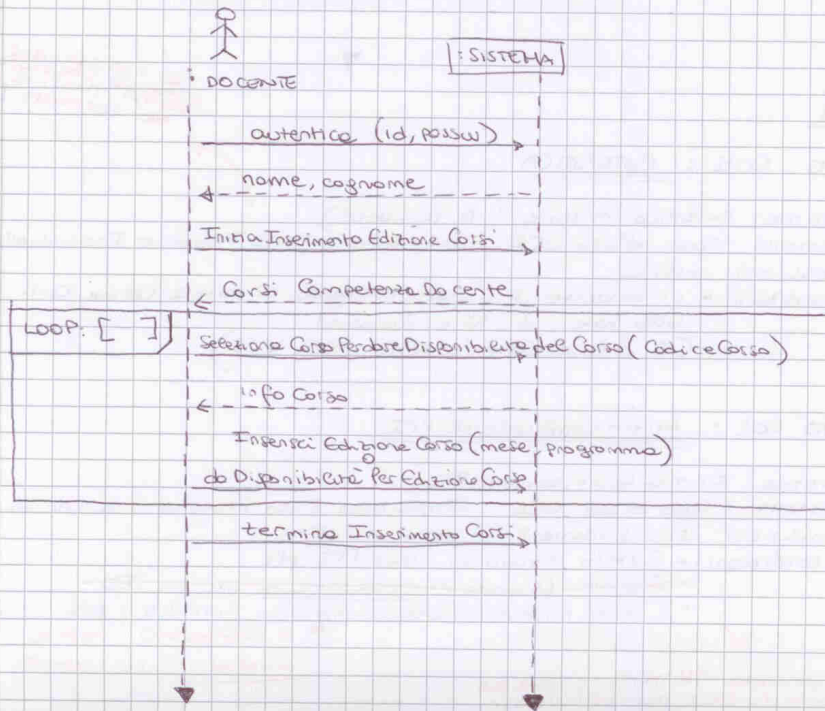 : SISTEMA
: DOCENTE
autentica (id, passw)
nome, cognome
Inizia Inserimento Edizione Corsi
Corsi Competenza Docente
LOOP: [ ]
Seleziona Corso PerdareDisponibilità del Corso (CodiceCorso)
info Corso
Inserisci Edizione Corso (mese, programma)
O
do Disponibilità Per Edizione Corso
termina Inserimento Corsi